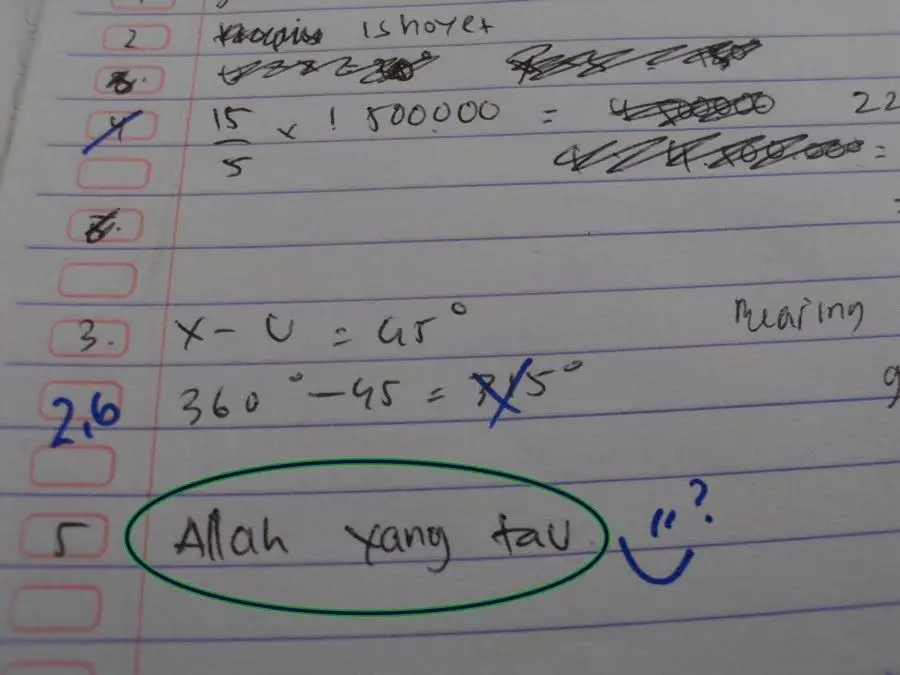 2 ishoyet
4 15/5 x 1 500000 = 22
=
3. X - U = 45° Bearing
2,6 360° - 45 = 315° 9
5 Allah yang tau "?